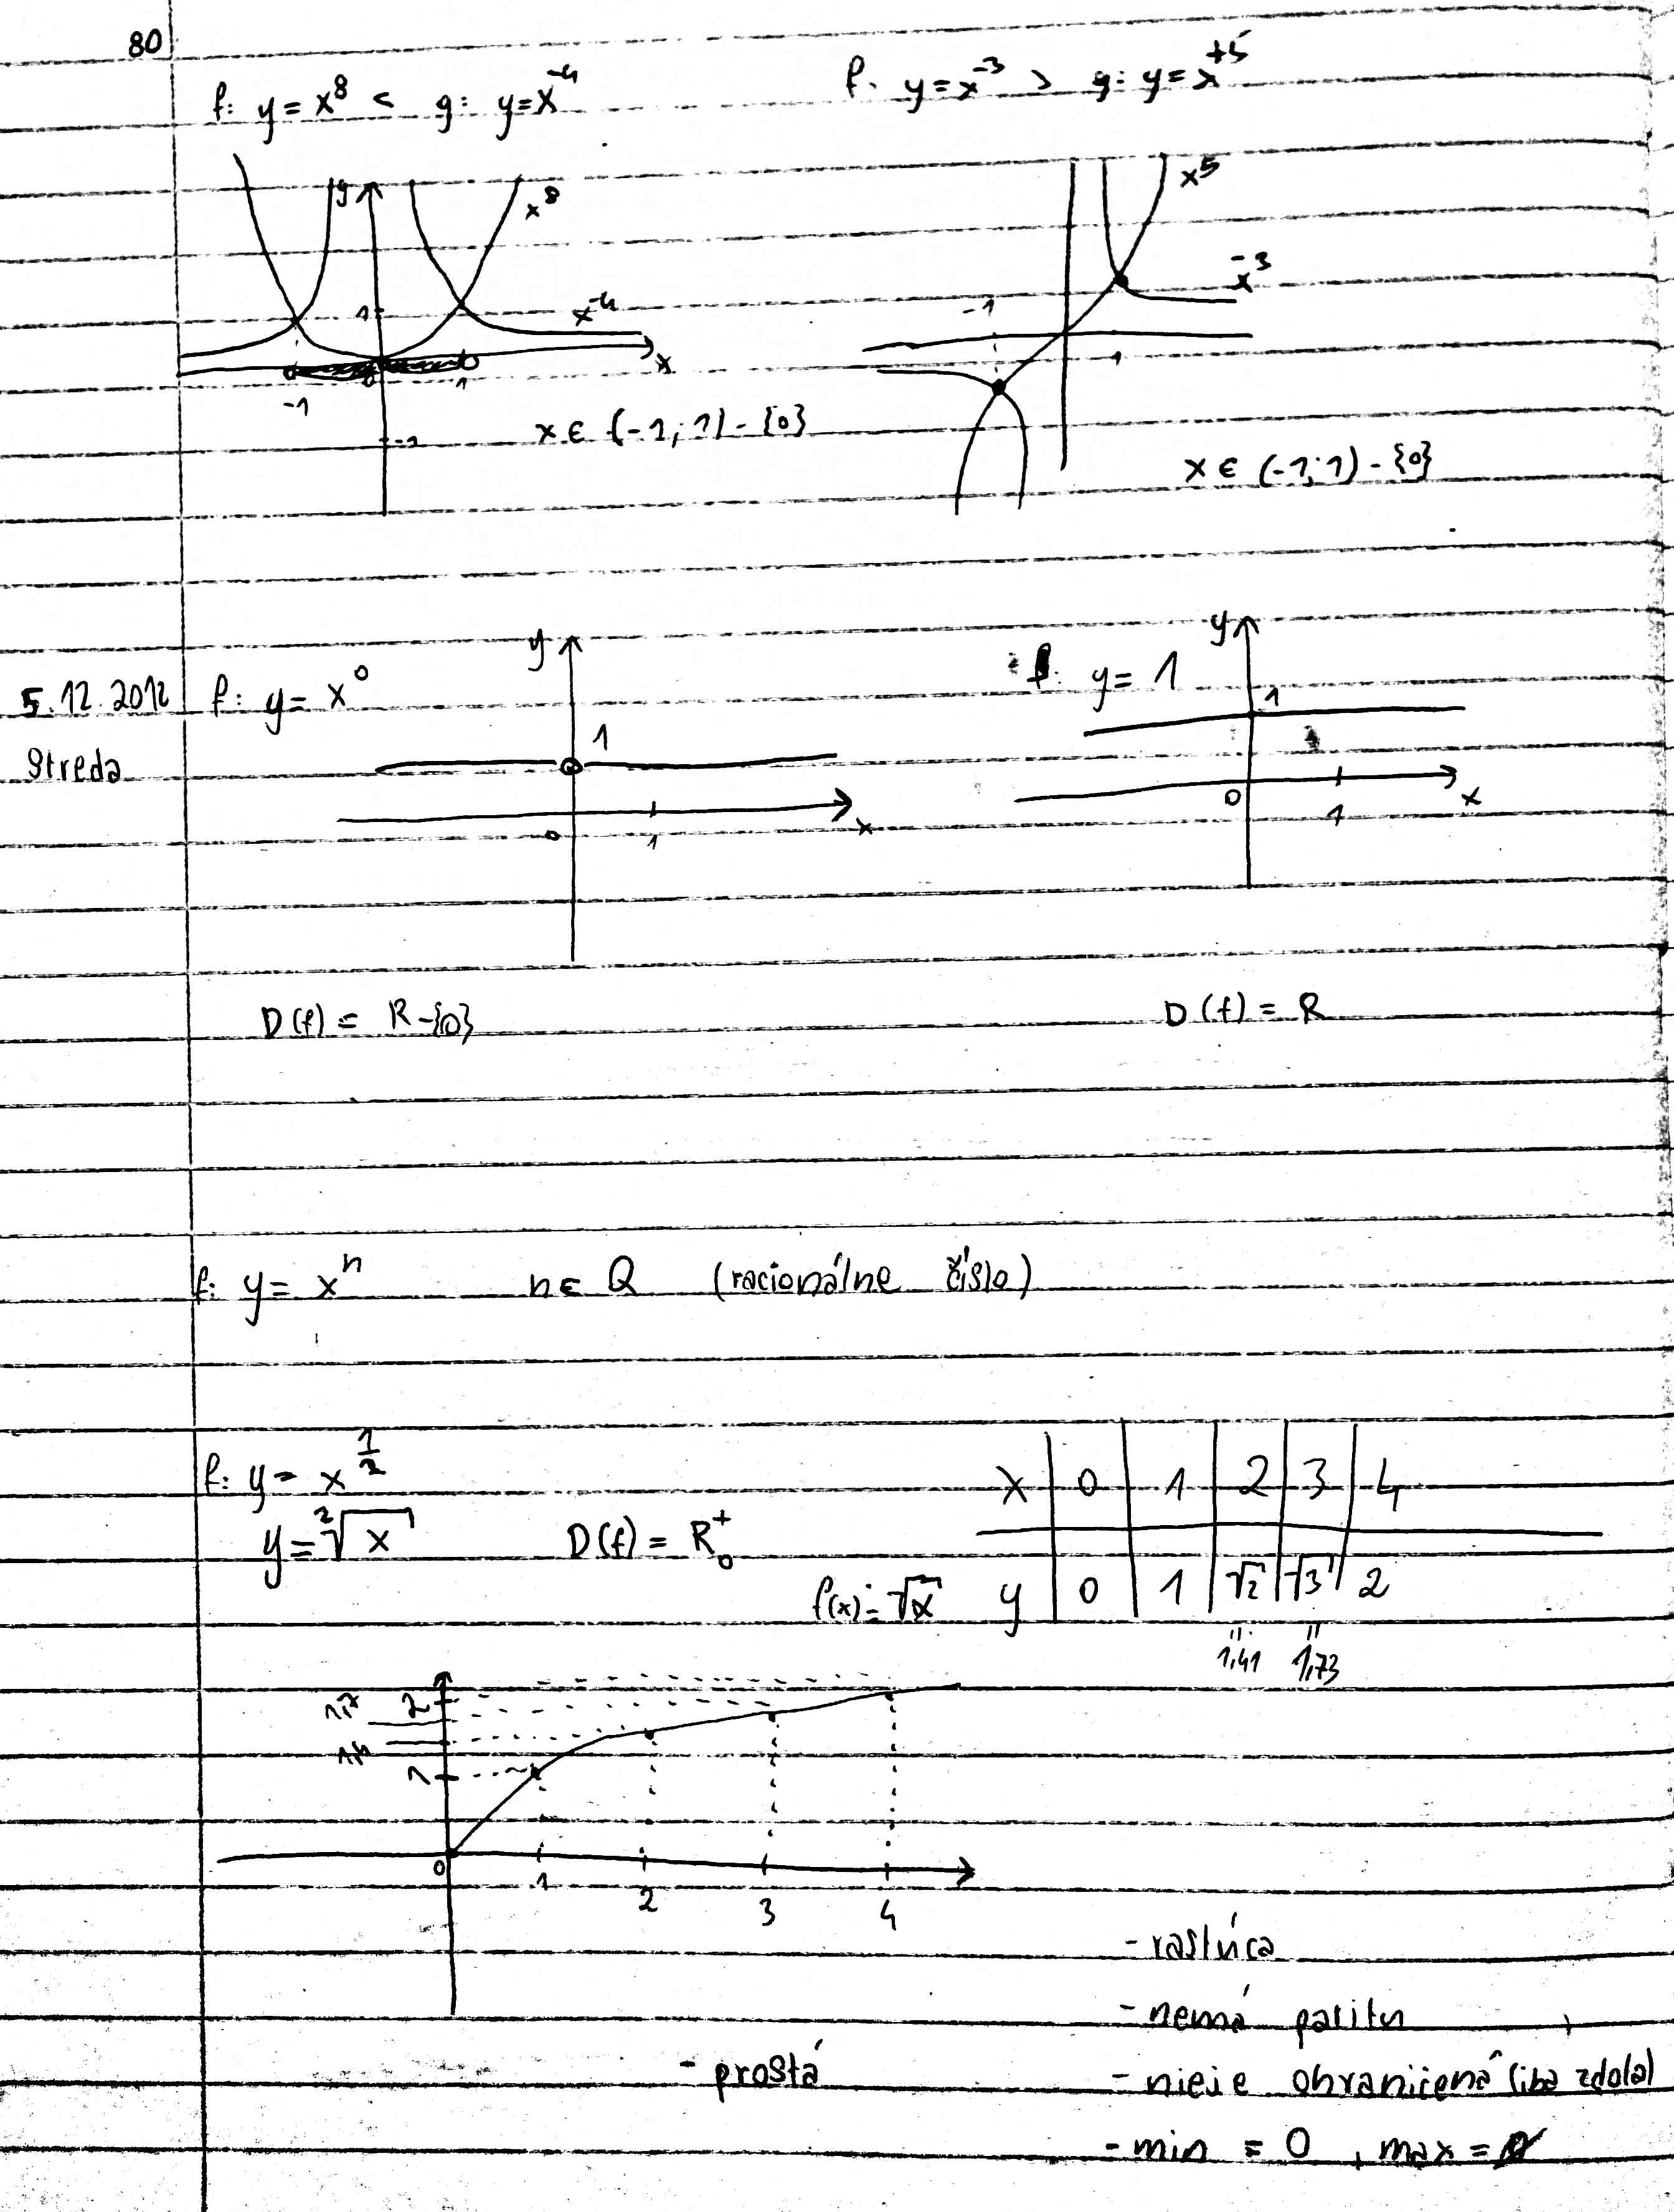 80
f: y = x⁸ < g: y = x⁻⁴
f. y = x⁻³ > g: y = x⁺⁵
y x⁸
x⁵
x⁻³
1 x⁻⁴
-1
x
0 1
1
-1
x ∈ (-1; 1) - {0}
-1
x ∈ (-1; 1) - {0}
5.12.2012
Streda
f: y = x⁰
y
1
x
0 1
f: y = 1
y
1
0 1 x
D(f) = R - {0}
D(f) = R
f: y = xⁿ n ∈ Q (racionálne číslo)
f: y = x^(1/2)
y = ²√x D(f) = R₀⁺
x 0 1 2 3 4
f(x) = √x y 0 1 √2 √3 2
1,41 1,73
1,7 2
1,4
1
0 1 2 3 4
- rastúca
- nemá paritu
- prostá
- nieje ohraničená (iba zdola)
- min = 0, max = ∅